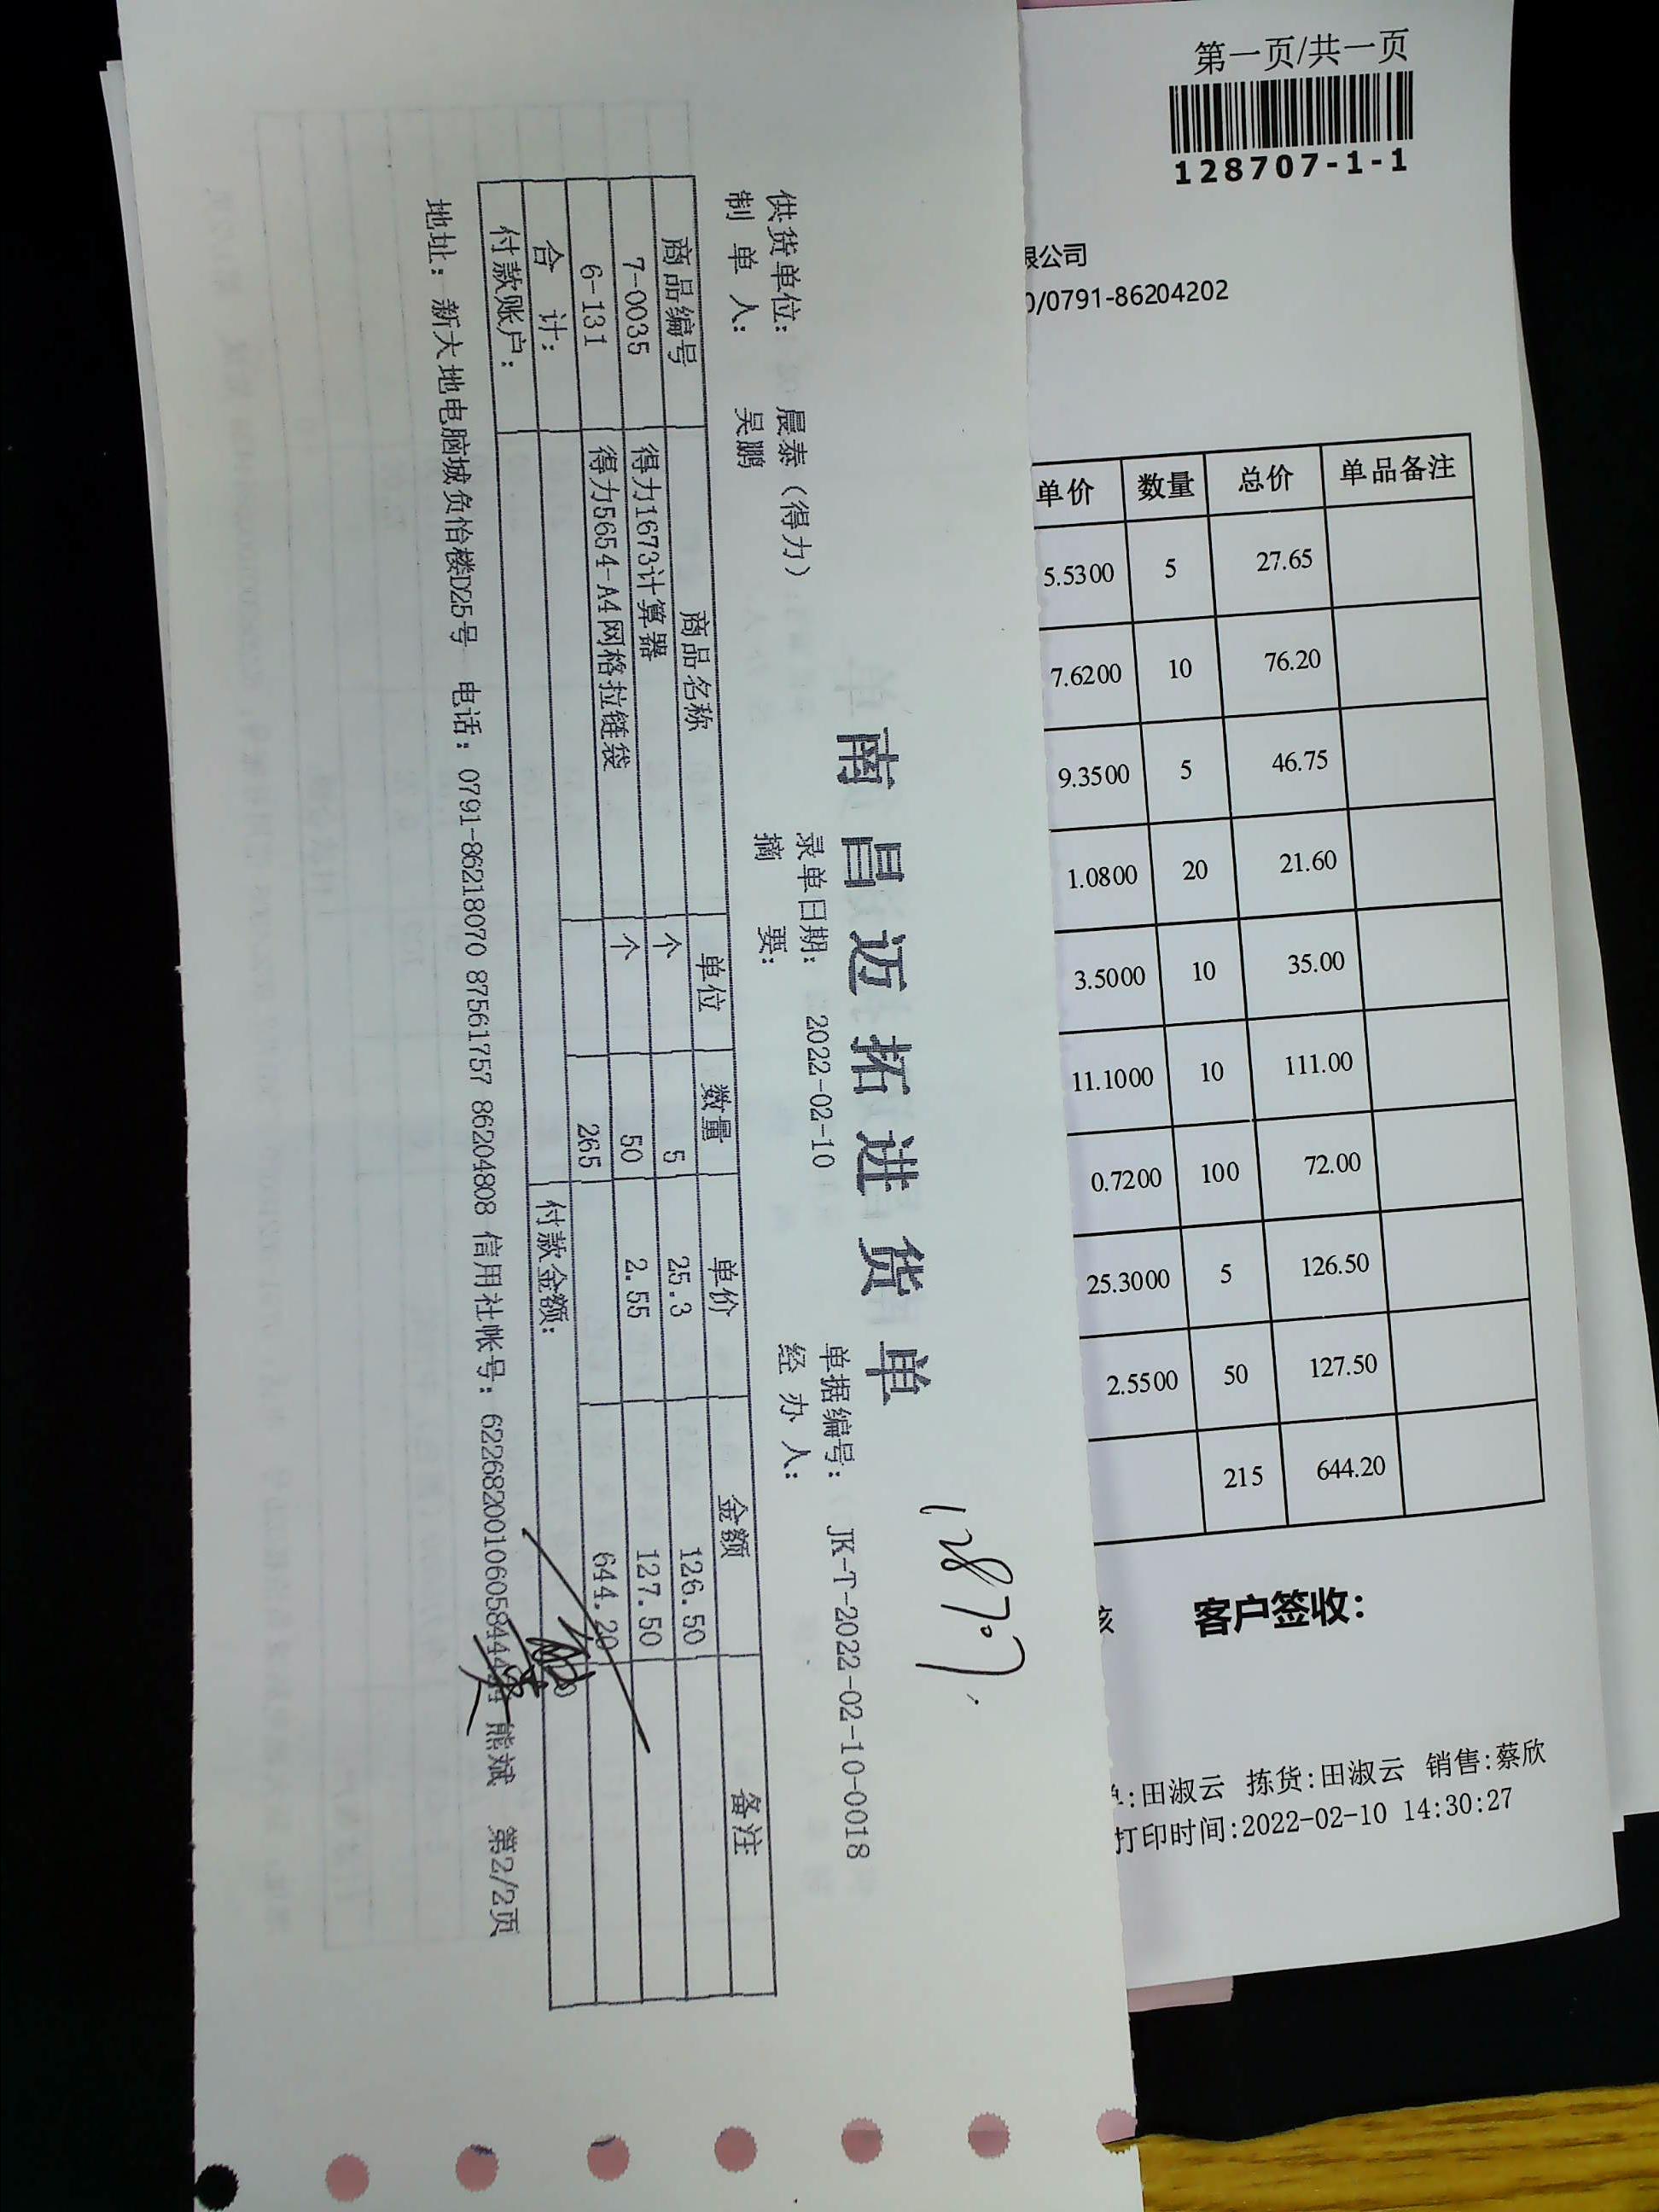 第一页/共一页
128707-1-1
限公司
0/0791-86204202
单价 数量 总价 单品备注
5.5300 5 27.65
7.6200 10 76.20
9.3500 5 46.75
1.0800 20 21.60
3.5000 10 35.00
11.1000 10 111.00
0.7200 100 72.00
25.3000 5 126.50
2.5500 50 127.50
215 644.20
核 客户签收:
单:田淑云 拣货:田淑云 销售:蔡欣
打印时间:2022-02-10 14:30:27
128707
南昌迈拓进货单
供货单位: 晨泰(得力) 录单日期: 2022-02-10 单据编号: JK-T-2022-02-10-0018
制单人: 吴鹏 摘要: 经办人:
商品编号 商品名称 单位 数量 单价 金额 备注
7-0035 得力1673计算器 个 5 25.3 126.50
6-131 得力5654-A4网格拉链袋 个 50 2.55 127.50
合计: 265 644.20
付款账户: 付款金额:
地址: 新大地电脑城负怡楼D25号 电话: 0791-86218070 87561757 86204808 信用社帐号: 熊斌 第2/2页